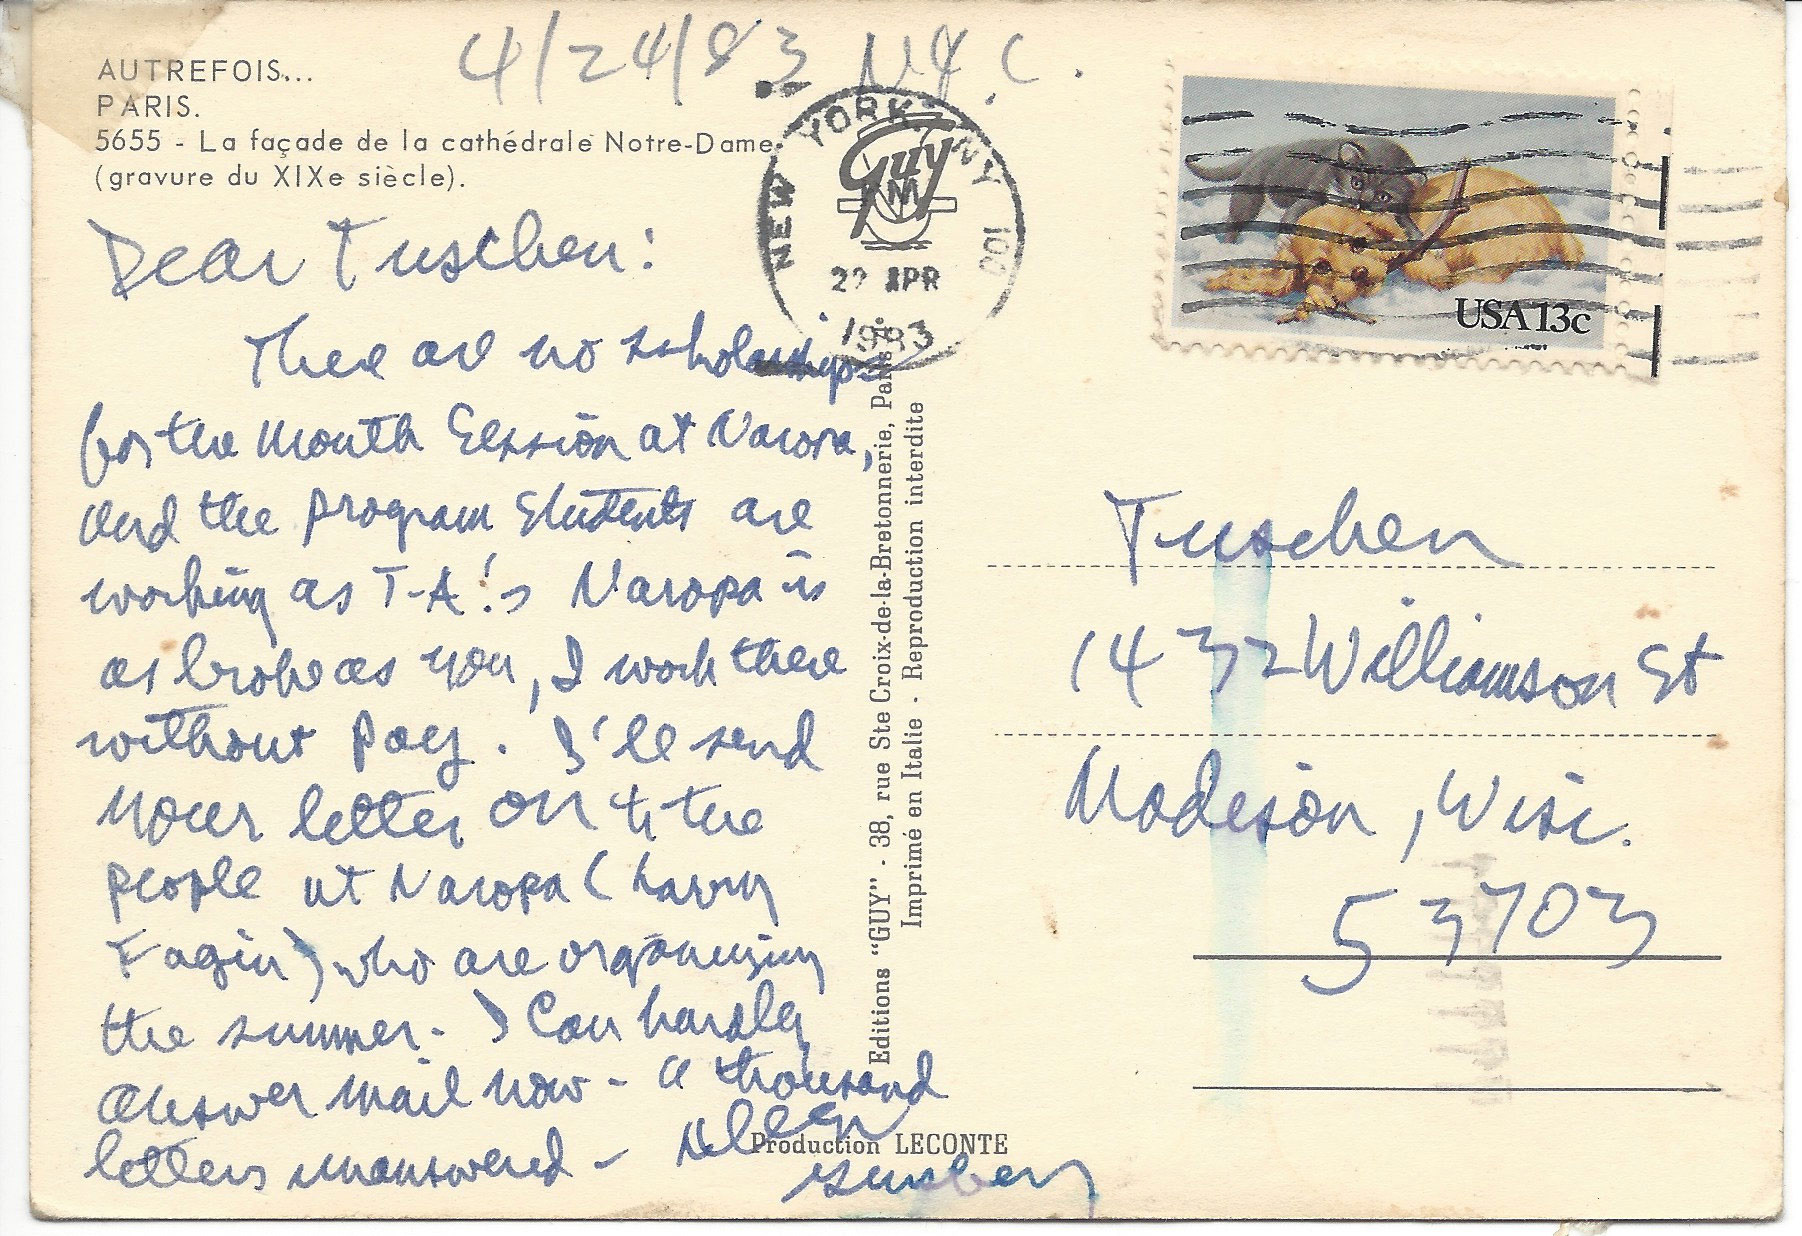 4/24/83 NYC.
AUTREFOIS...
PARIS.
5655 - La façade de la cathédrale Notre-Dame
(gravure du XIXe siècle).
NEW YORK, NY 100
Guy
22 APR
1983
USA 13c
Dear Tuschen:
There are no scholarships
for the month Session at Naropa,
and the program Students are
working as T-A.'s Naropa is
as broke as you, I work there
without pay. I'll send
your letter on to the
people at Naropa (Larry
Fagin) who are organizing
the summer. I can hardly
answer mail now - a thousand
letters unanswered - Allen
Ginsberg
Editions "GUY" - 38, rue Ste Croix-de-la-Bretonnerie, Paris
Imprimé en Italie - Reproduction interdite
Production LECONTE
Tuschen
1432 Williamson St
Madison, Wisc.
53703